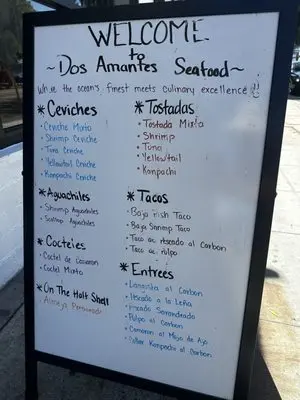 WELCOME
to
~ Dos Amantes Seafood ~
Where the ocean's finest meets culinary excellence!
* Ceviches
• Ceviche Mixto
• Shrimp Ceviche
• Tuna Ceviche
• Yellowtail Ceviche
• Kanpachi Ceviche
* Aguachiles
• Shrimp Aguachiles
• Scallop Aguachiles
* Cocteles
• Coctel de Camaron
• Coctel Mixto
* On The Half Shell
• Almeja Preparada
* Tostadas
• Tostada Mixta
• Shrimp
• Tuna
• Yellowtail
• Kanpachi
* Tacos
• Baja Fish Taco
• Baja Shrimp Taco
• Taco de Pescado al Carbon
• Taco de Pulpo
* Entrees
• Langosta al Carbon
• Pescado a la Leña
• Pescado Zarandeado
• Pulpo al Carbon
• Camaron al Mojo de Ajo
• Collar Kanpachi al Carbon